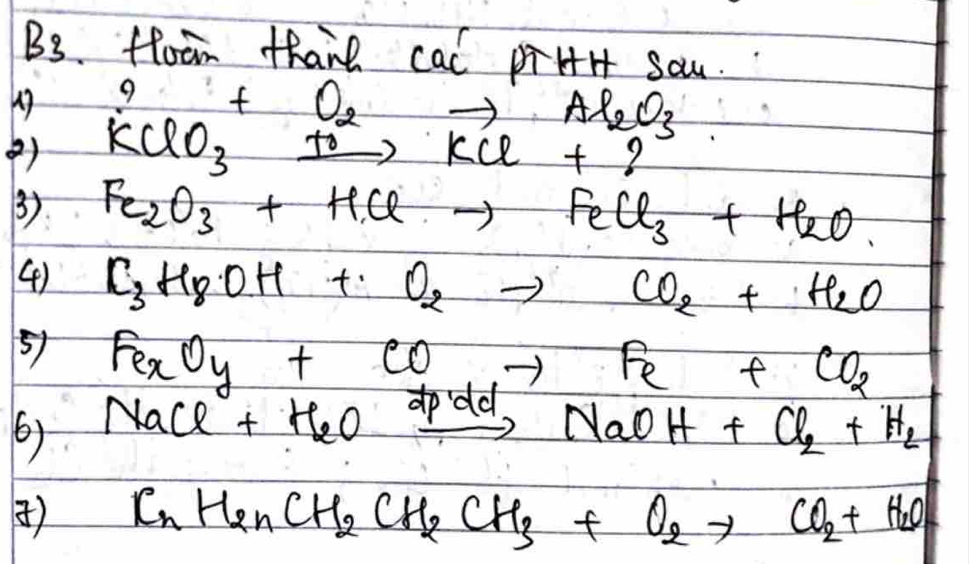 B3. Hoàn thành các PTHH sau.
1) ? + O₂ → Al₂O₃
2) KClO₃ t° → KCl + ?
3) Fe₂O₃ + HCl → FeCl₃ + H₂O.
4) C₃H₈OH + O₂ → CO₂ + H₂O
5) FeₓOy + CO → Fe + CO₂
6) NaCl + H₂O đp dd → NaOH + Cl₂ + H₂
7) CnH2nCH₂CH₂CH₃ + O₂ → CO₂ + H₂O